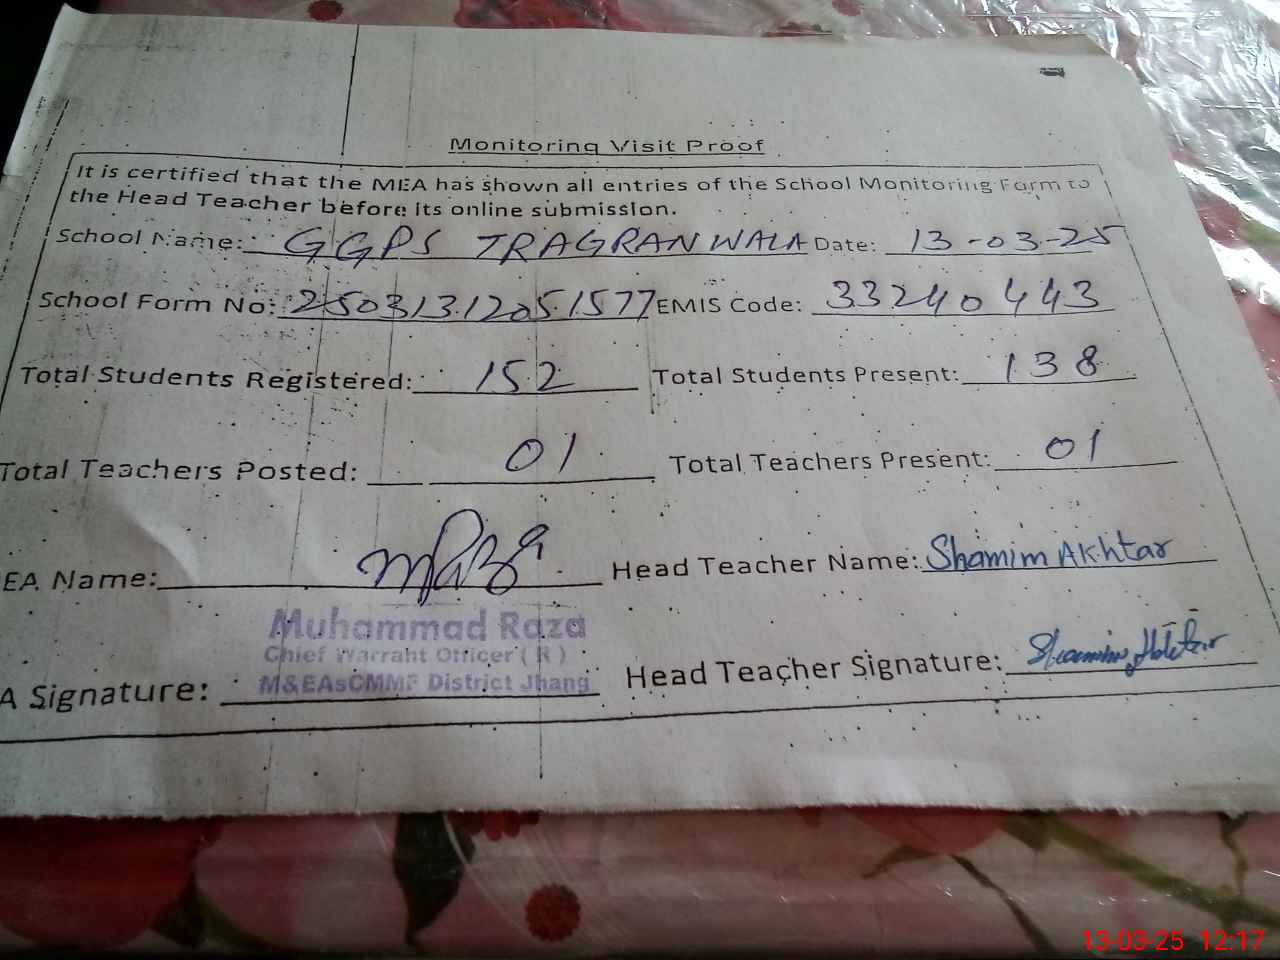 Monitoring Visit Proof
It is certified that the MEA has shown all entries of the School Monitoring Form to
the Head Teacher before its online submission.
School Name: GGPS TRAGRANWALA Date: 13-03-25
School Form No: 25031312051577 EMIS Code: 33240443
Total Students Registered: 152 Total Students Present: 138
Total Teachers Posted: 01 Total Teachers Present: 01
EA Name: MRaza Head Teacher Name: Shamim Akhtar
Muhammad Raza
Chief Warrant Officer ( R )
M&EAsCMMF District Jhang
A Signature: Head Teacher Signature: Shamim Akhtar
13-03-25 12:17